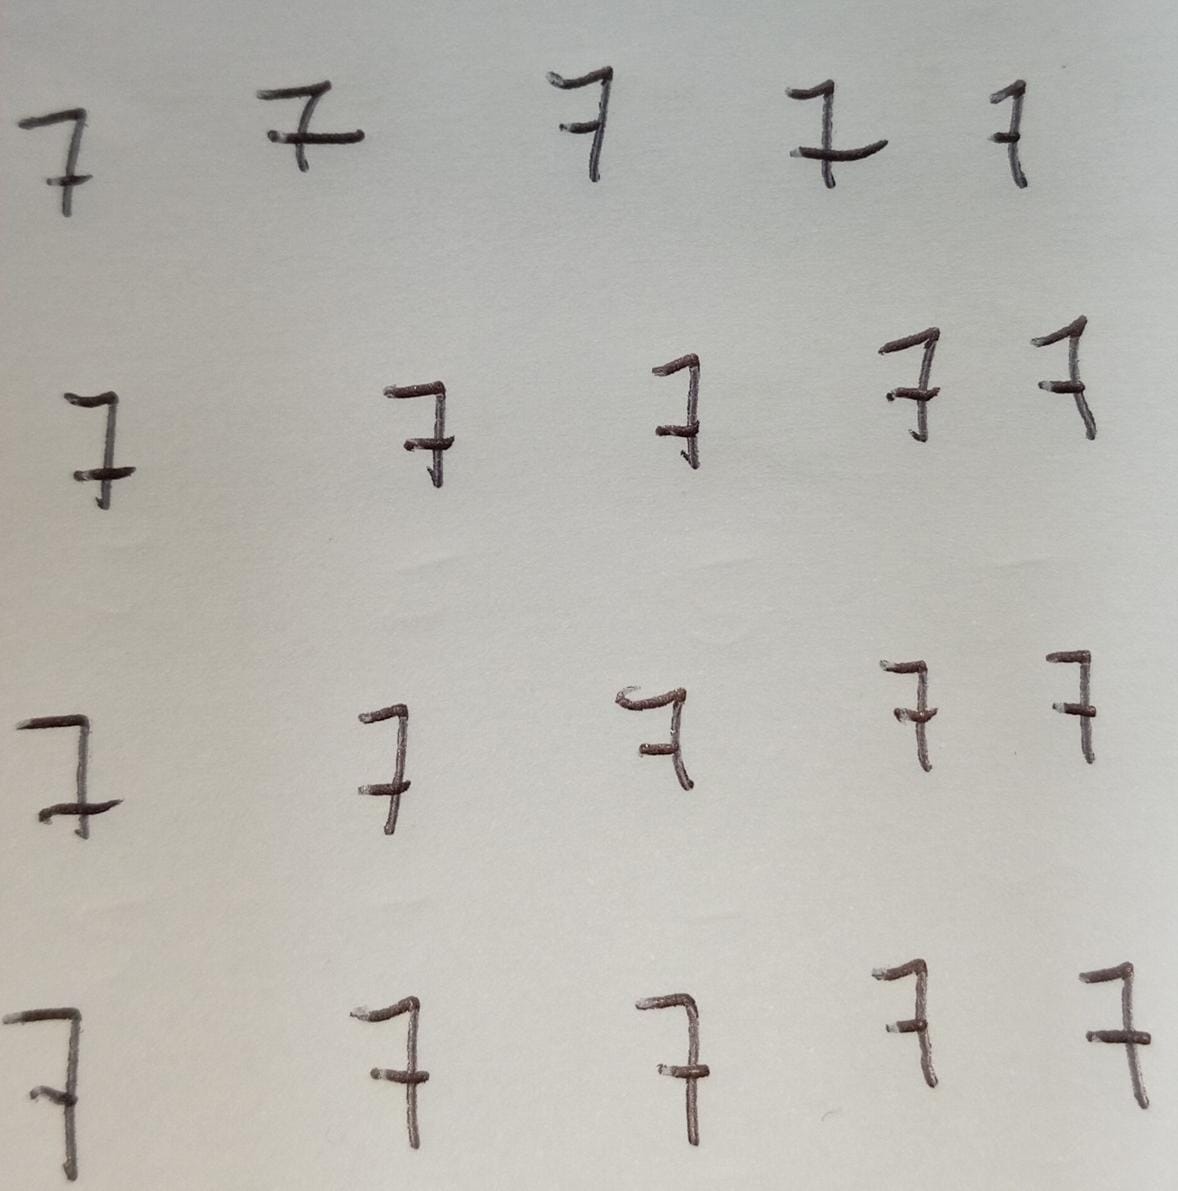 7 7 7 7 7
7 7 7 7 7
7 7 7 7 7
7 7 7 7 7